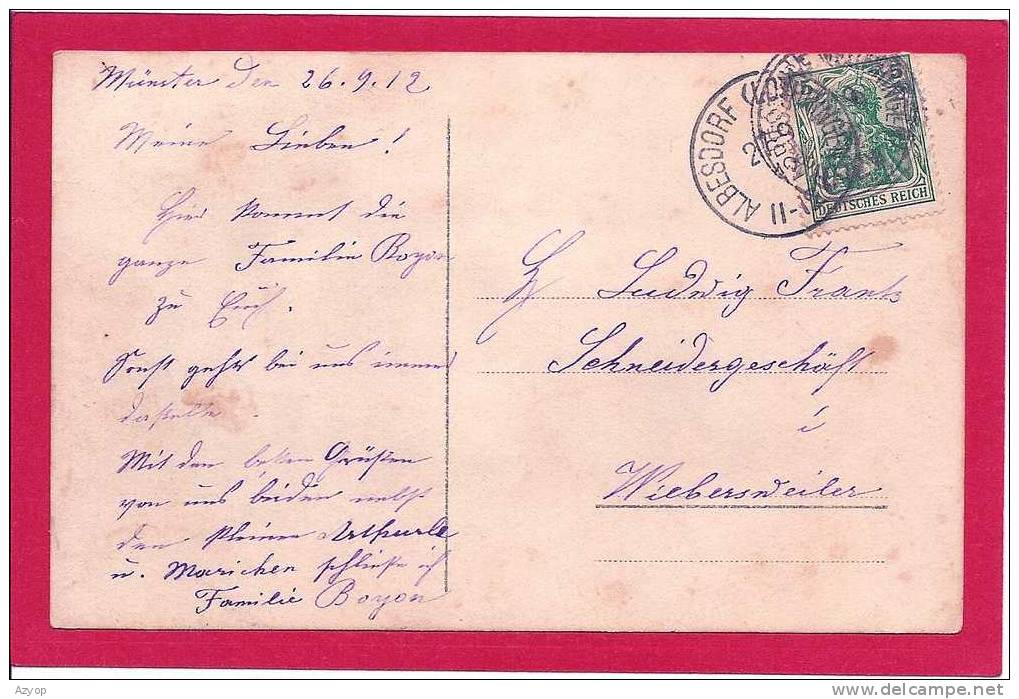 Münster den 26.9.12
Meine Lieben!
Hier kommt die
ganze Familie Boyon
zu Euch.
Sonst geht's bei uns immer
dasselbe.
Mit den besten Grüßen
von uns beiden nebst
den kleinen Arthurle
u. Mariechen schließe ich
Familie Boyon
ALBESDORF (LOTHR
27
11-12
DEUTSCHES REICH
5
H Ludwig Frantz
Schneidergeschäft
i
Wiebersweiler
Azyop
www.delcampe.net